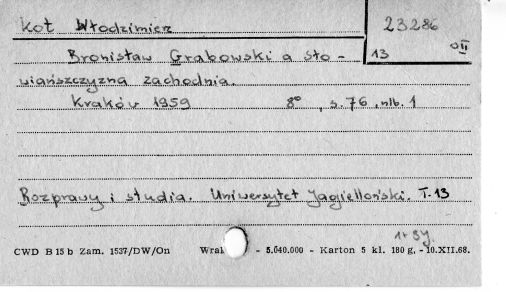 Kot Włodzimierz
23286
Bronisław Grabowski a sło-
13
wiańszczyzna zachodnia.
Kraków 1959 8° , s. 76 , nlb. 1
Rozprawy i studia. Uniwersytet Jagielloński. T. 13
CWD B 15 b Zam. 1537/DW/On - 5.040.000 - Karton 5 kl. 180 g. - 10.XII.68.